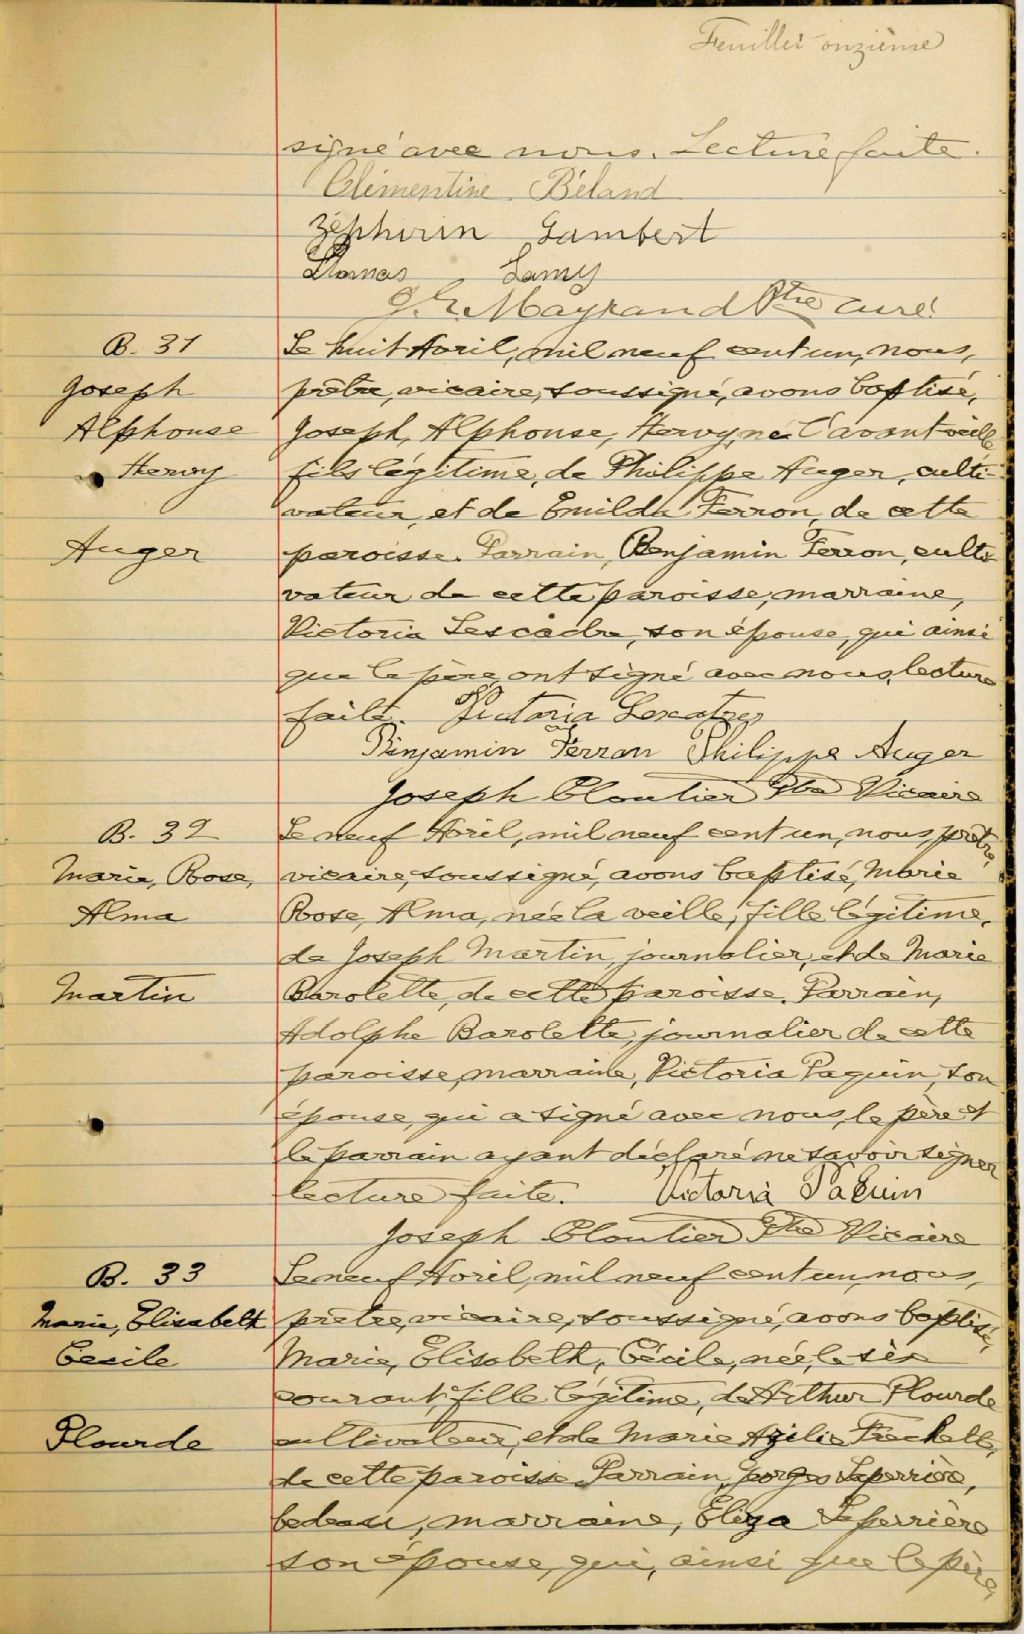 Feuillet onzième
signé avec nous. Lecture faite.
Clémentine Béland
Zéphirin Lambert
Lamy
J. E. Mayrand Ptre curé
B. 31
Joseph
Alphonse
Hervy
Auger
Le huit Avril, mil neuf cent un, nous,
prêtre, vicaire, soussigné, avons baptisé,
Joseph, Alphonse, Hervy, né l'avant veille
fils légitime, de Philippe Auger, culti-
vateur, et de Emilda Ferron, de cette
paroisse. Parrain, Benjamin Ferron, culti-
vateur de cette paroisse, marraine,
Victoria Lescadre, son épouse, qui ainsi
que le père, ont signé avec nous, lecture
faite. Victoria
Benjamin Ferron Philippe Auger
Joseph Cloutier Ptre Vicaire
B. 32
Marie, Rose,
Alma
Martin
Le neuf Avril, mil neuf cent un, nous, prêtre,
vicaire, soussigné, avons baptisé, Marie
Rose, Alma, née la veille, fille légitime,
de Joseph Martin, journalier, et de Marie
Barolette, de cette paroisse. Parrain,
Adolphe Barolette, journalier de cette
paroisse, marraine, Victoria Paquin, son
épouse, qui a signé avec nous, le père et
le parrain ayant déclaré ne savoir signer
lecture faite. Victoria Paquin
Joseph Cloutier Ptre Vicaire
B. 33
Marie, Elisabeth
Cecile
Plourde
Le neuf Avril, mil neuf cent un, nous,
prêtre, vicaire, soussigné, avons baptisé,
Marie, Elisabeth, Cécile, née, le six
courant, fille légitime, de Arthur Plourde
cultivateur, et de Marie Azilie Frechette,
de cette paroisse. Parrain, Georges Laperrière,
bedeau, marraine, Eliza Laperrière
son épouse, qui, ainsi que le père,